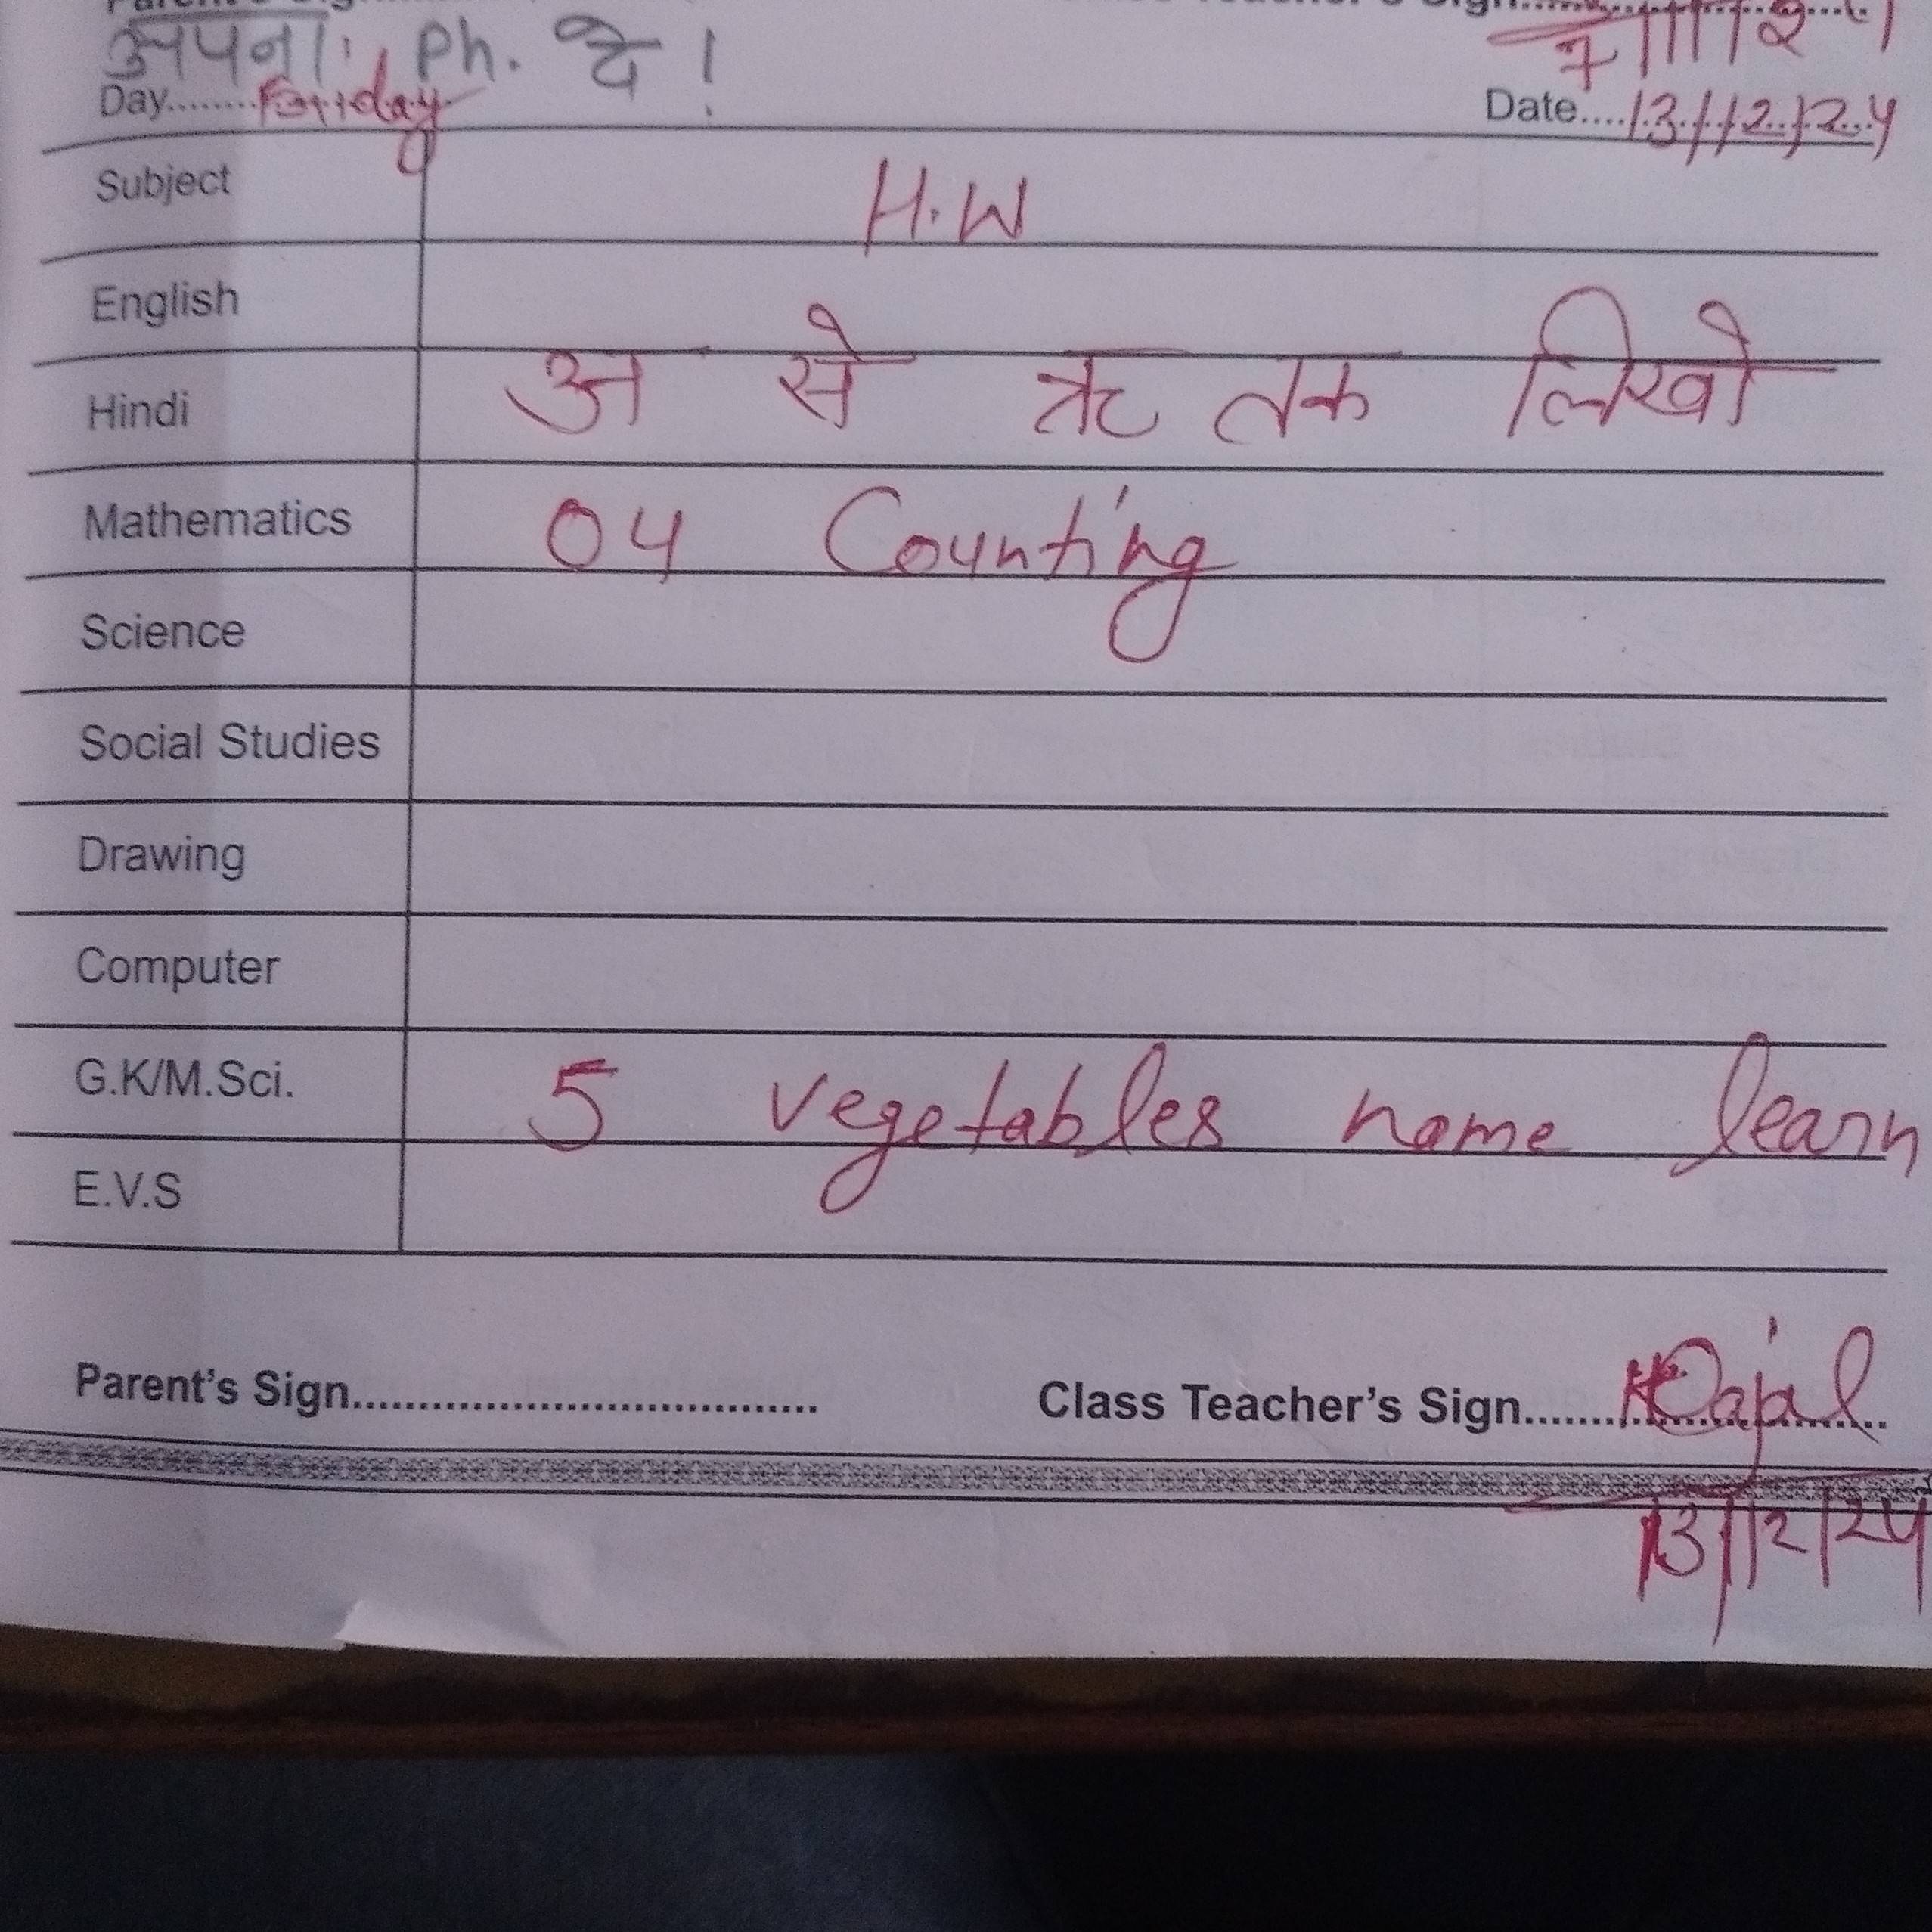 अपना Ph. दे !
Day........Friday
Date....13/12/24
Subject H.W
English
Hindi अ से ऋ तक लिखो
Mathematics 04 Counting
Science
Social Studies
Drawing
Computer
G.K/M.Sci. 5 vegetables name learn
E.V.S
Parent's Sign.................................... Class Teacher's Sign.......Kajal
13/12/24